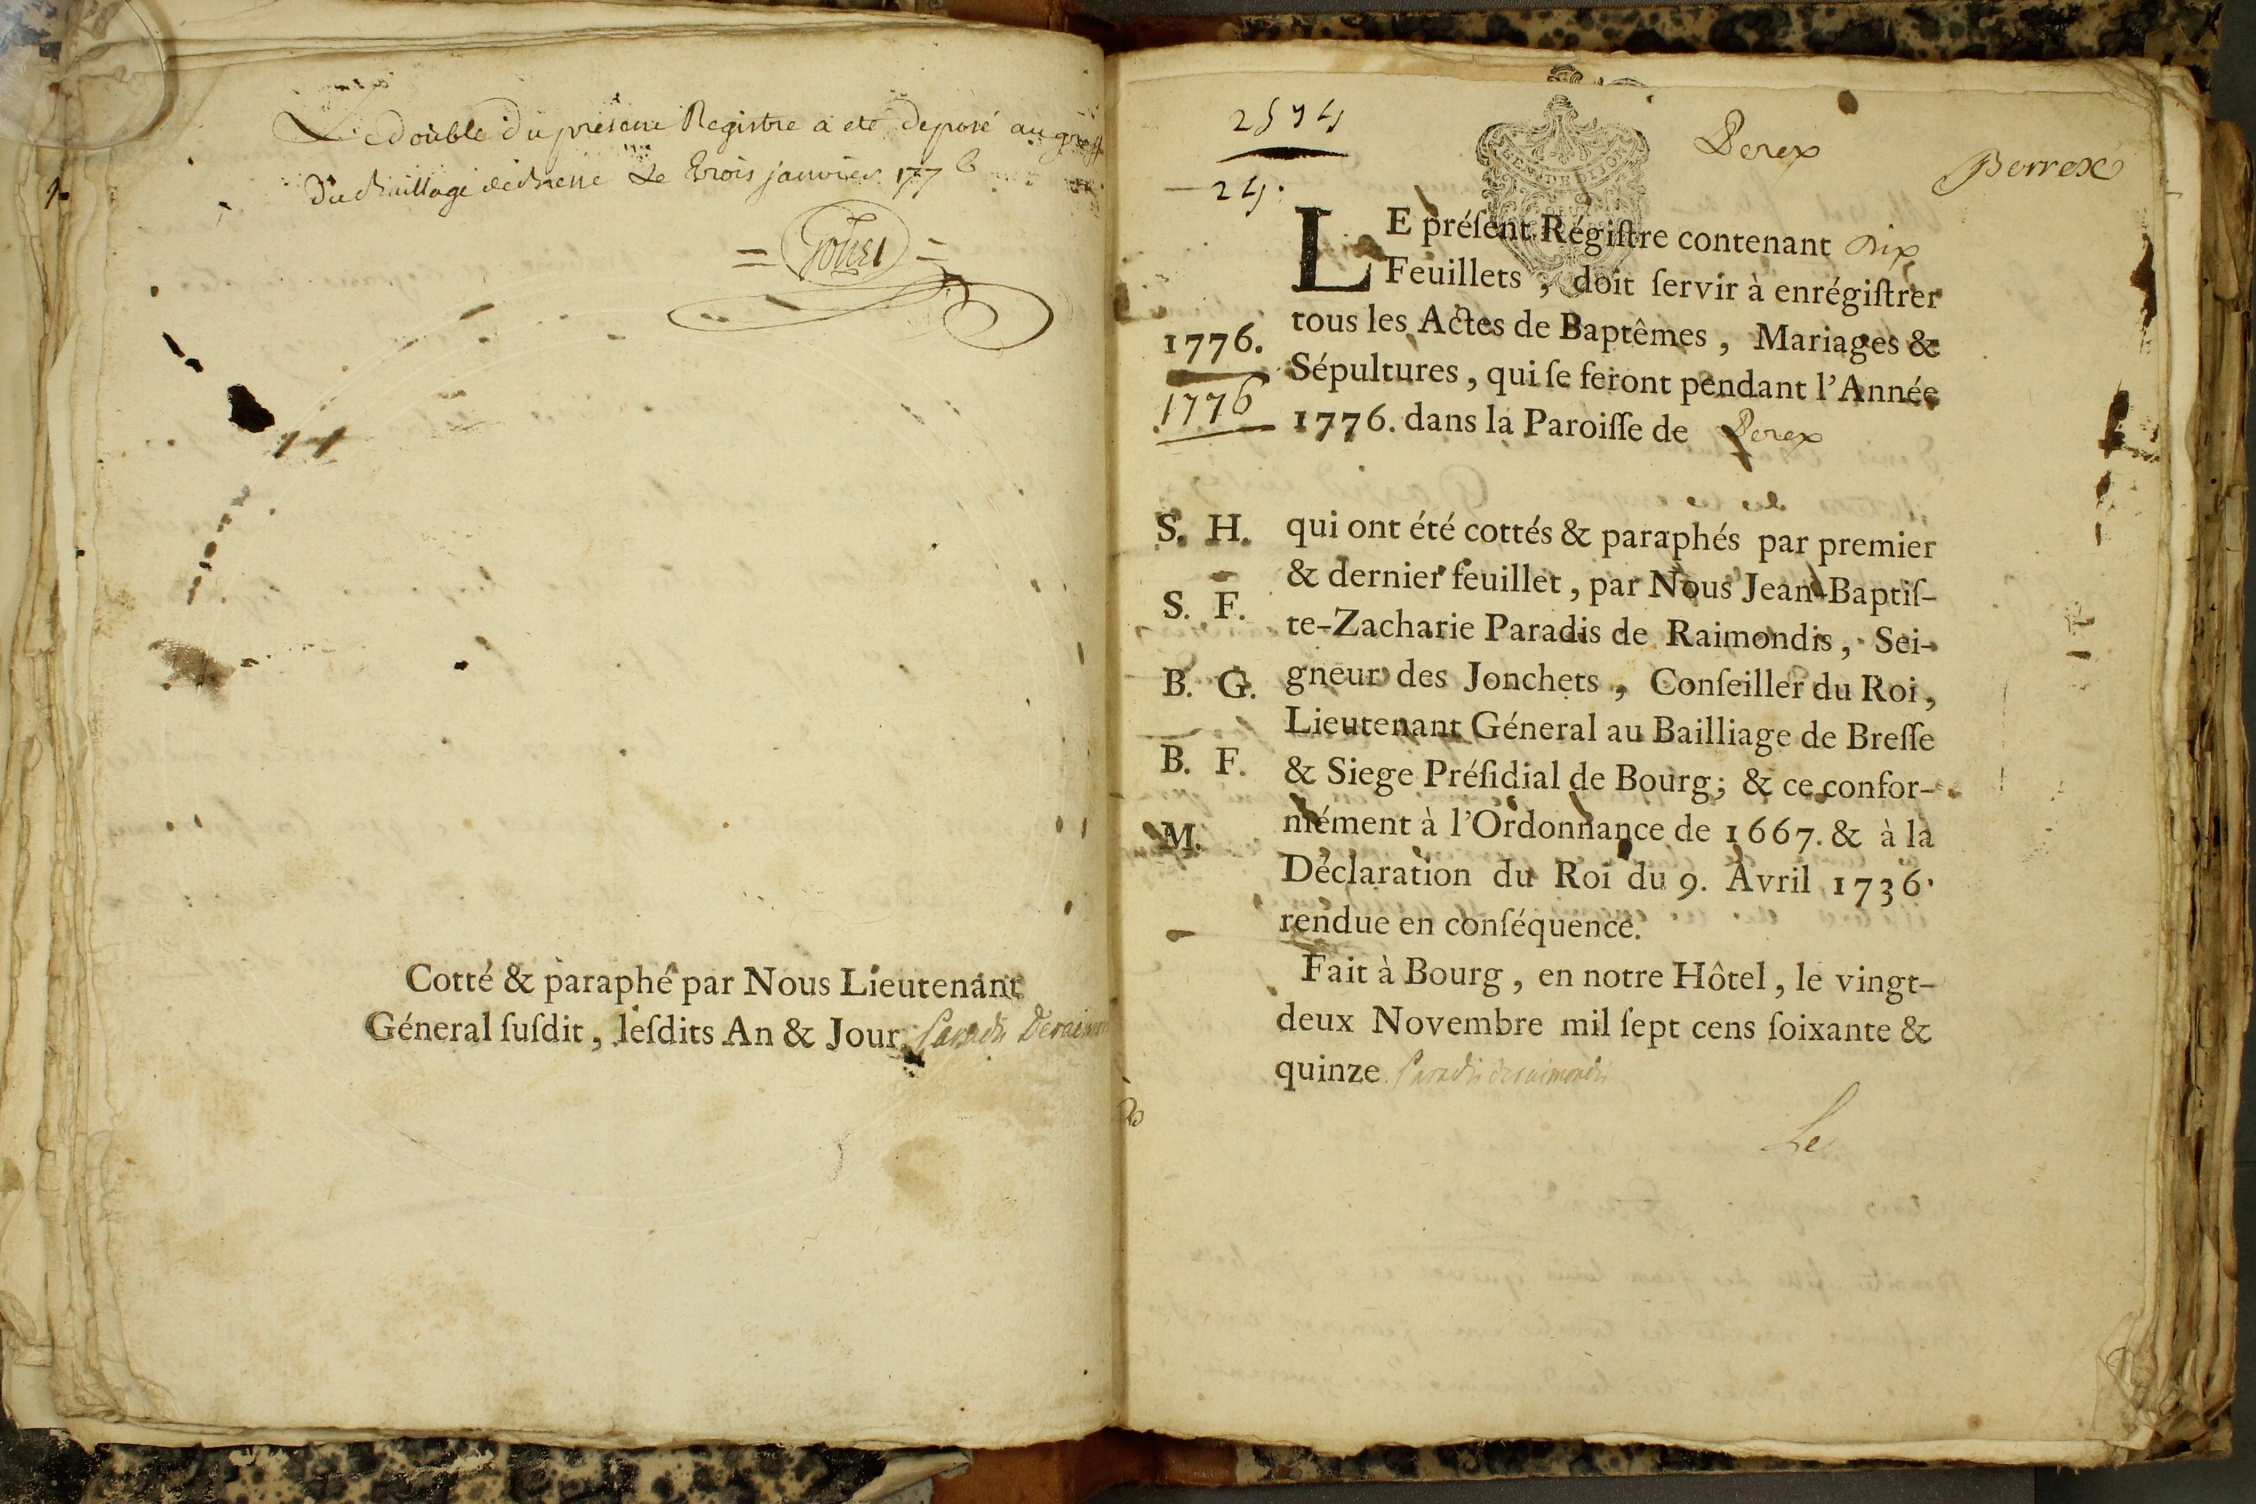 Le double du présent Registre a été déposé au greffe
du Bailliage de Bresse Le trois janvier 1776
Cotté & paraphé par Nous Lieutenant
Géneral ſuſdit, leſdits An & Jour. Paradis Deraimon
2574
24.
Perex
Perrex
LE préſent Régiſtre contenant dix
Feuillets, doit ſervir à enrégiſtrer
tous les Actes de Baptêmes, Mariages &
1776.
Sépultures, qui ſe feront pendant l'Année
1776
1776. dans la Paroiſſe de Perex
S. H.
qui ont été cottés & paraphés par premier
& dernier feuillet, par Nous Jean-Baptiſ-
S. F.
te-Zacharie Paradis de Raimondis, Sei-
B. G.
gneur des Jonchets, Conſeiller du Roi,
Lieutenant Géneral au Bailliage de Breſſe
B. F.
& Siege Préſidial de Bourg; & ce confor-
M.
mément à l'Ordonnance de 1667. & à la
Déclaration du Roi du 9. Avril 1736.
rendue en conſéquence.
Fait à Bourg, en notre Hôtel, le vingt-
deux Novembre mil ſept cens ſoixante &
quinze. Paradis deraimondis
Le